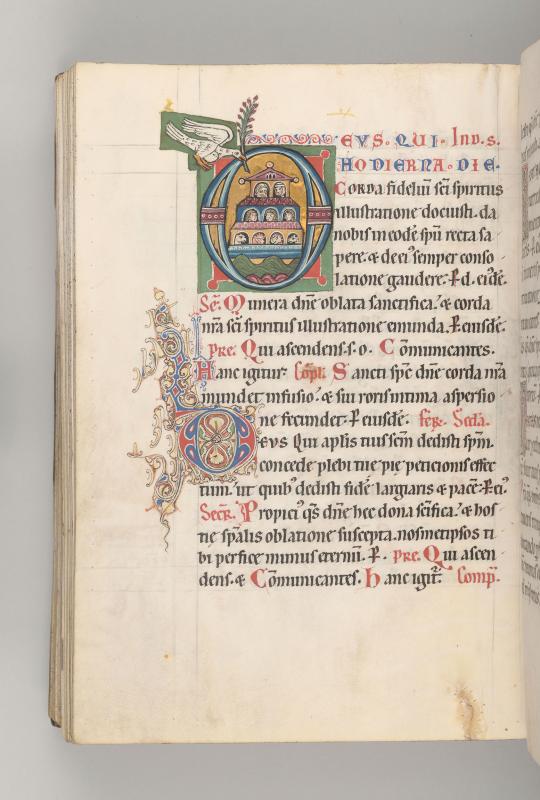 DEVS. QUI. Ind. s.
HODIERNA. DIE.
Corda fideliū sc̄i spiritus
illustratione docuisti. da
nobis in eodē spū recta sa
pere. & de ei' semper conso
latione gaudere. P. d. eiusdē.
Sec̄. Munera dn̄e oblata sanctifica. & corda
nr̄a sc̄i spiritus illustratione emunda. P. eiusdē.
pre. Qui ascendens. s. o. Cōmunicantes.
Hanc igitur. Cōpl. Sancti spc̄ dn̄e corda nr̄a
mundet infusio. & sui roris intima aspersio
ne fecundet. P. eiusdē. fer. Sc̄da.
Devs Qui aplis tuis sc̄m dedisti spm̄.
concede plebi tue pie peticionis effec
tum. ut quib' dedisti fidē largiaris & pacē. P. ei'
Secr̄. Propici' qs̄ dn̄e hec dona sc̄ifica. & hos
tie spālis oblatione suscepta. nosmetipsos ti
bi perfice munus eternū. P. pre. Qui ascen
dens. & Cōmunicantes. Hanc igit̄. Comp̄.